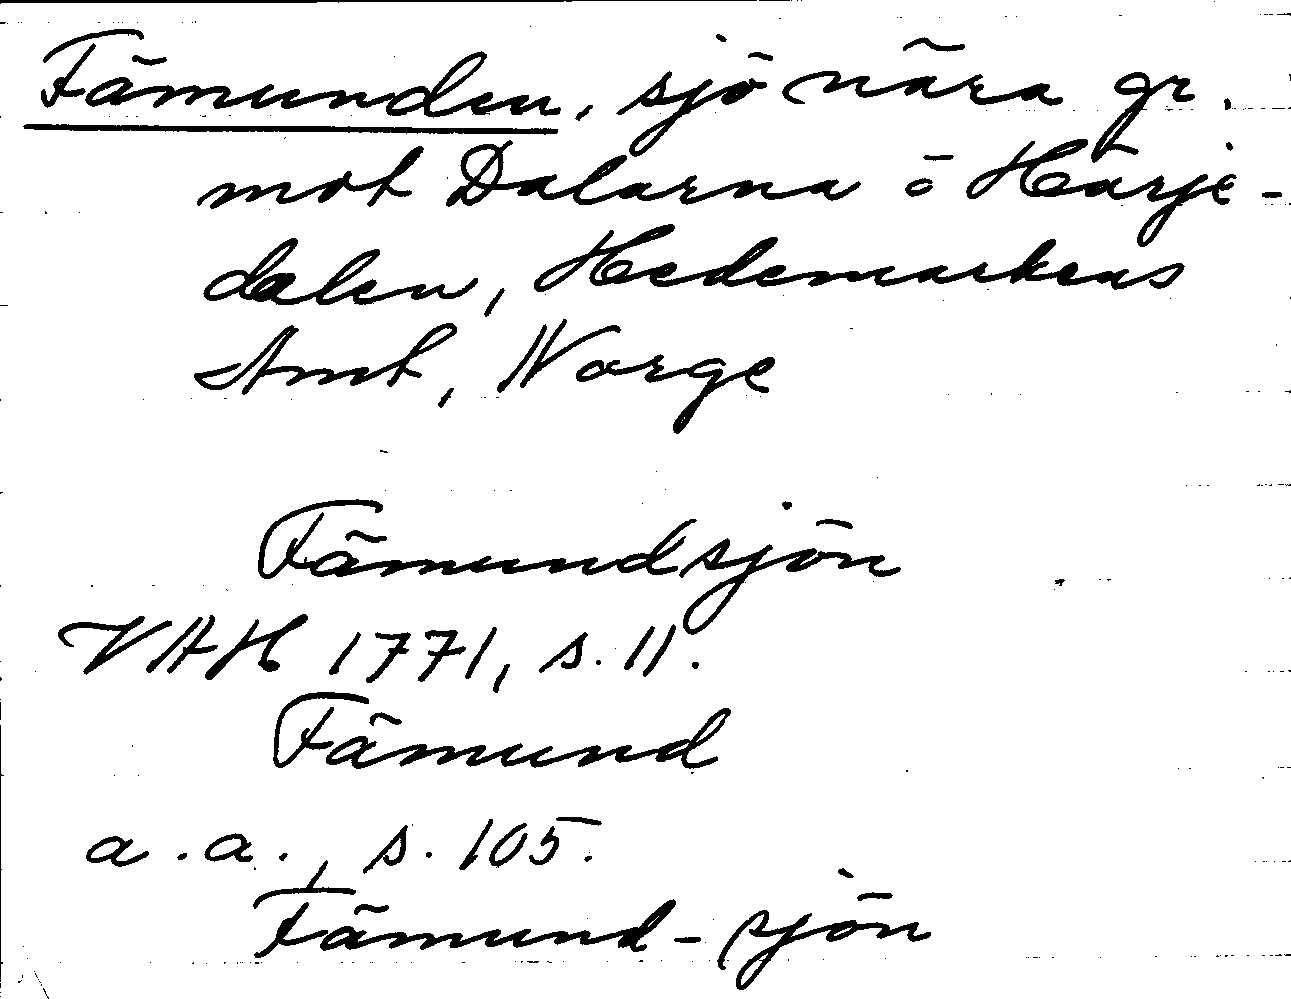 Fämunden, sjö nära gr.
mot Dalarna o Härje-
dalen, Hedemarkens
Amt, Norge
Fämundsjön
VAH 1771, s. 11.
Fämund
a.a., s. 105.
Fämund-sjön